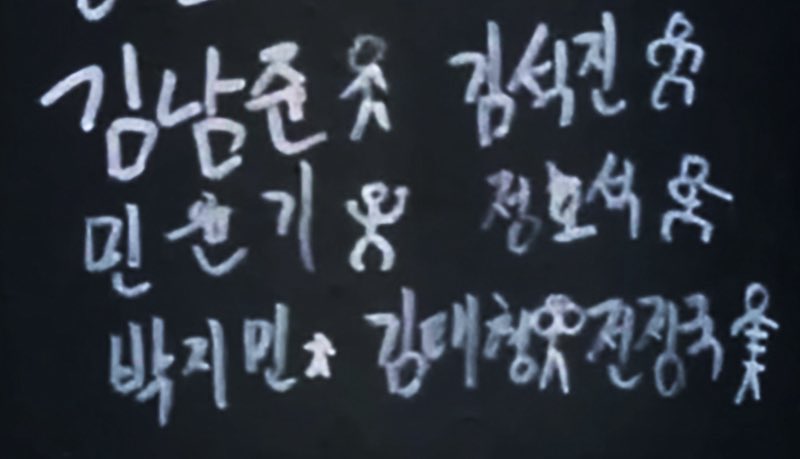 김남준 김석진
민윤기 정호석
박지민 김태형 전정국